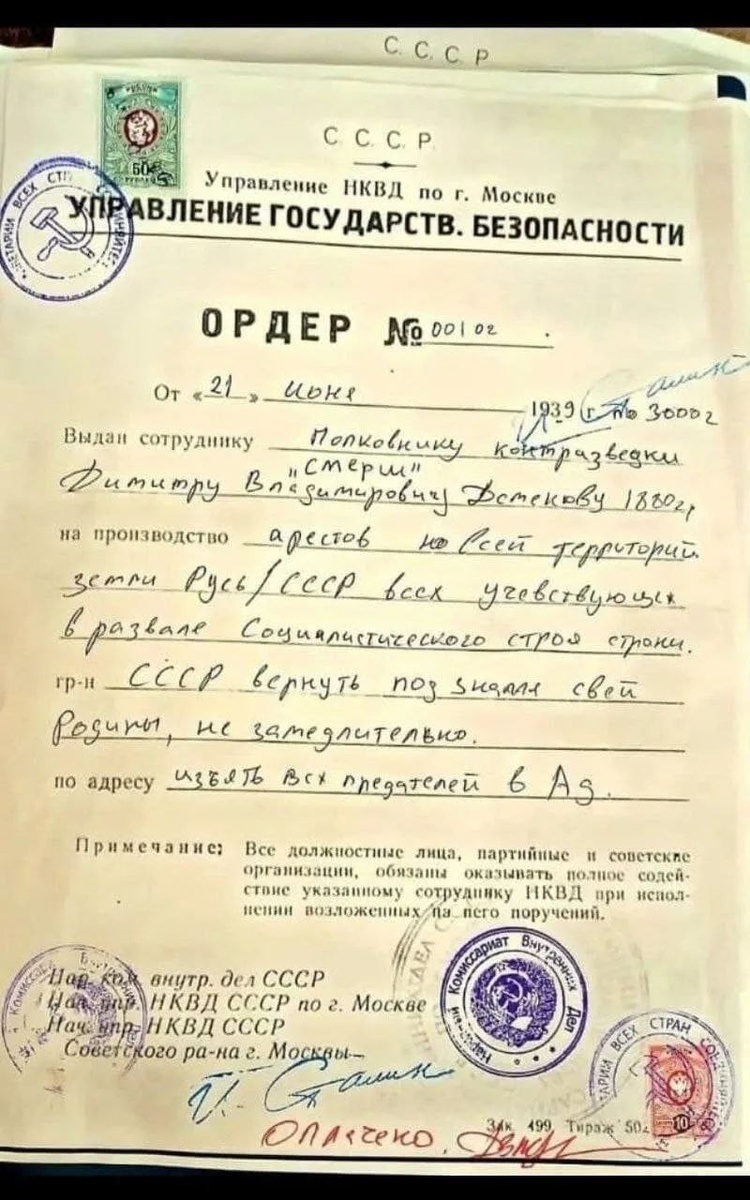 С. С. С. Р
С. С. С. Р.
50
Управление НКВД по г. Москве
УПРАВЛЕНИЕ ГОСУДАРСТВ. БЕЗОПАСНОСТИ
ОРДЕР № 00102 .
От «21» июня 1939 г по 3000г
Выдан сотруднику Полковнику контразведки
"Смерш"
Димитру Владимировичу 1880г,
на производство арестов на всей территорий
земли Русь/СССР всех учевствующих
в развале Социалистического строя страни.
гр-н СССР вернуть под знамя свей
Родины, не замедлительно.
по адресу изъять всх предателей в Ад.
Примечание: Все должностные лица, партийные и советские
организации, обязаны оказывать полное содей-
ствие указанному сотруднику НКВД при испол-
нении возложенных на него поручений.
Народный Комиссариат Внутренних Дел
Нар. ком. внутр. дел СССР
Нач. упр. НКВД СССР по г. Москве
Нач. упр. НКВД СССР
Советского ра-на г. Москвы
И. Сталин
ВСЕХ СТРАН
10
Зак. 499, Тираж 50
Оплачено.